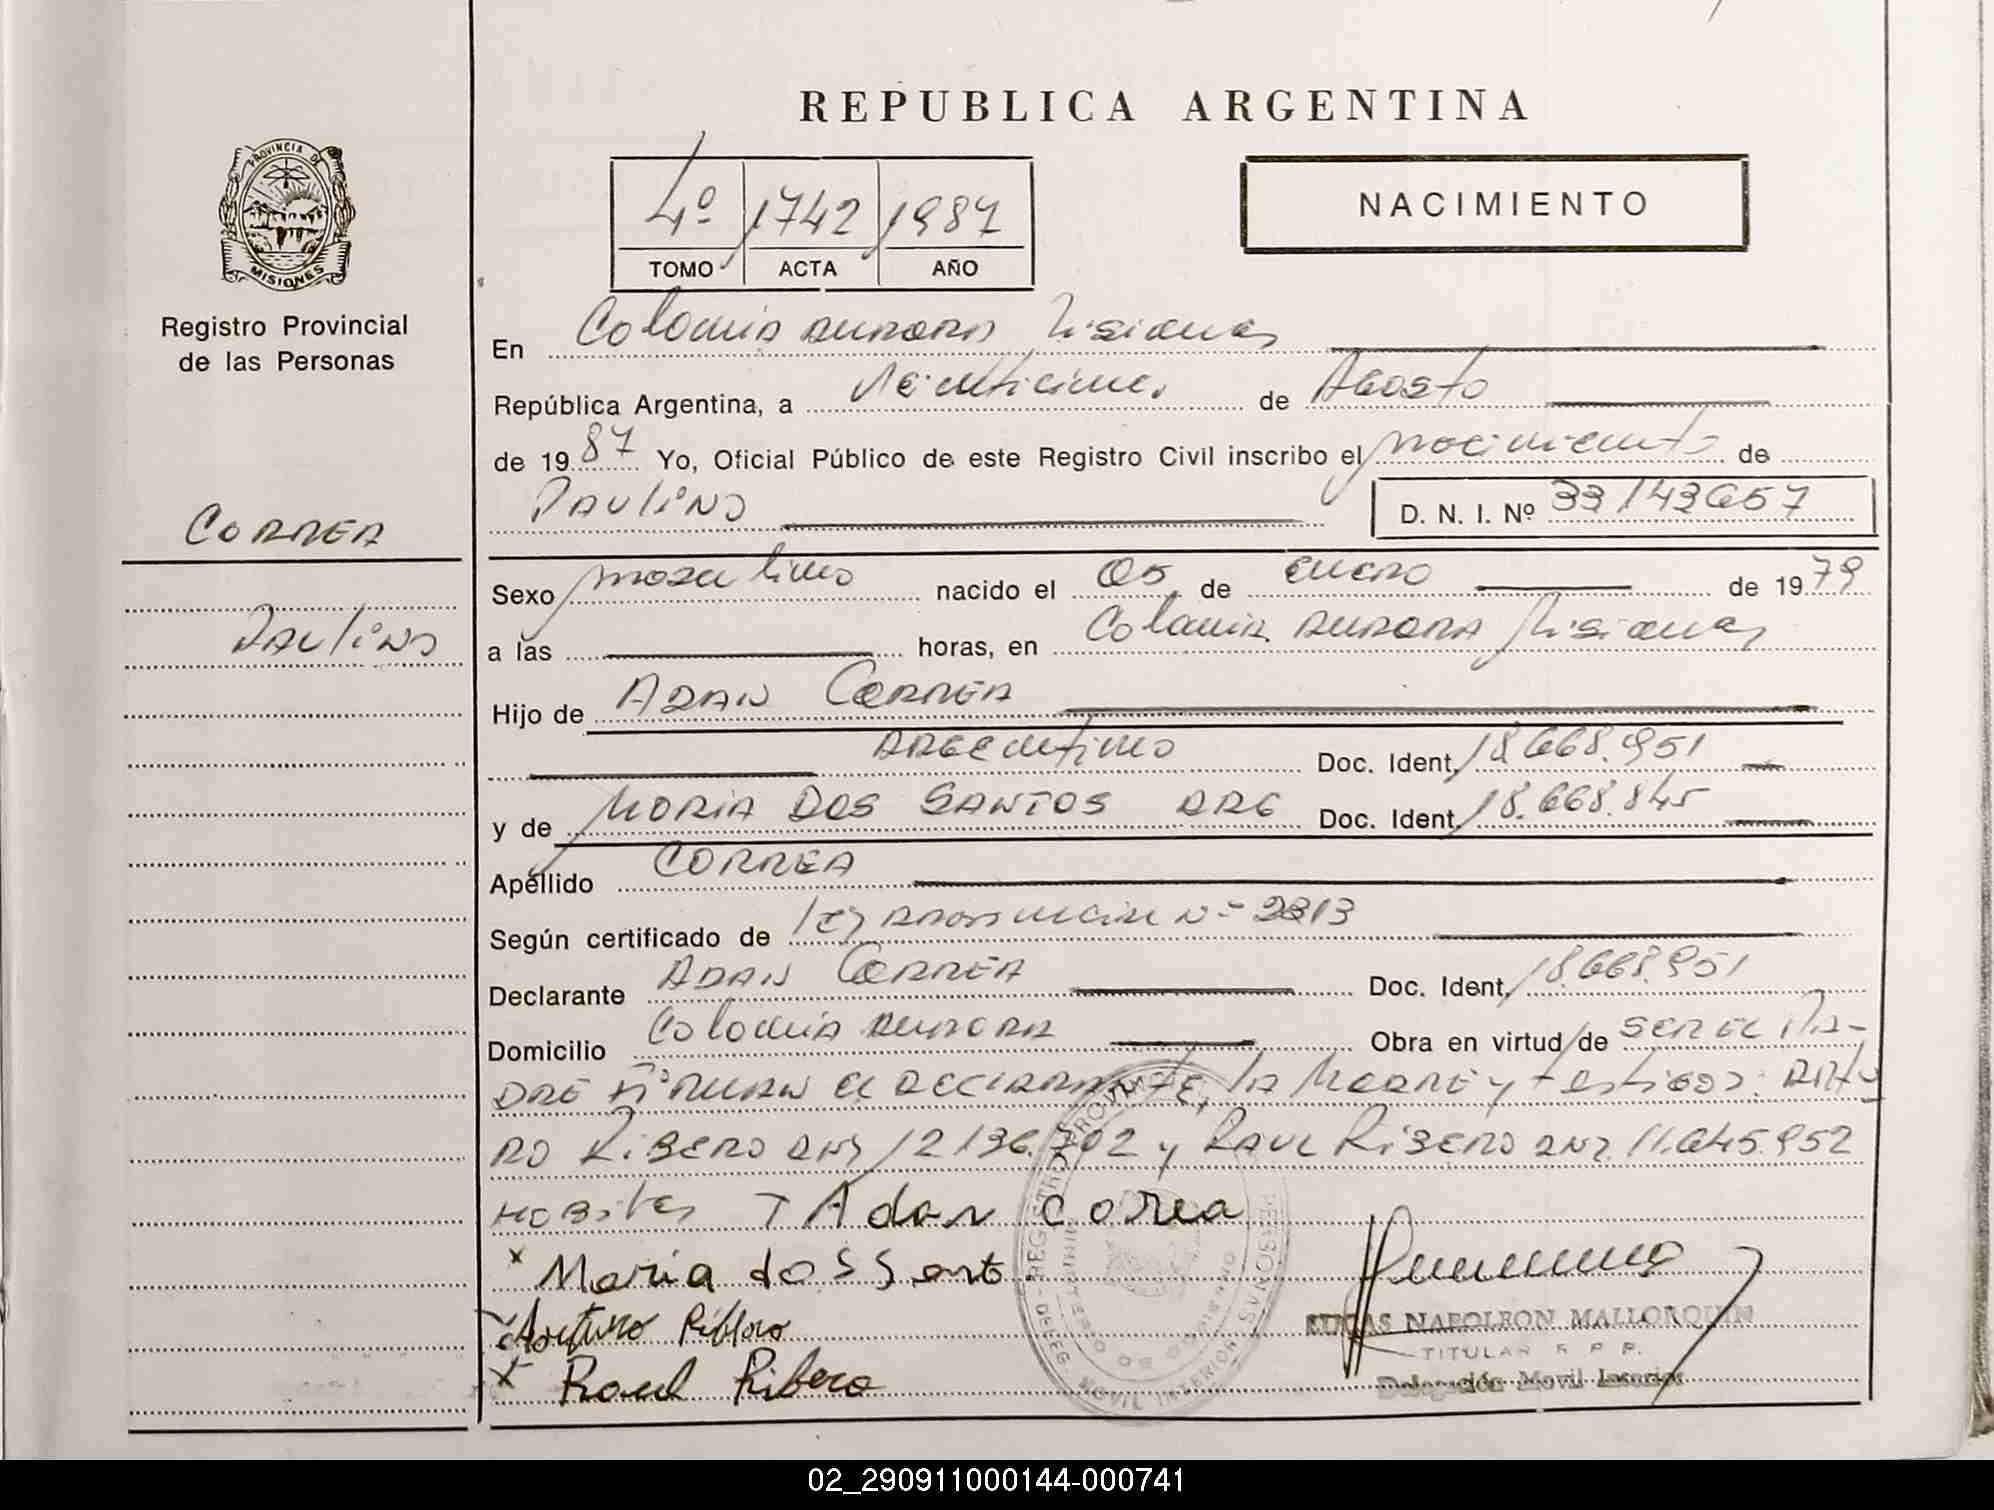 REPUBLICA ARGENTINA
PROVINCIA DE MISIONES
Registro Provincial
de las Personas
4º 1742 1987
TOMO ACTA AÑO
NACIMIENTO
En Colonia Aurora Misiones
República Argentina, a Veinticinco de Agosto
de 1987 Yo, Oficial Público de este Registro Civil inscribo el nacimiento de
Paulino D. N. I. Nº 33143657
CORREA
Paulino
Sexo masculino nacido el 05 de enero de 1979
a las horas, en Colonia Aurora Misiones
Hijo de ADAN CORREA
Argentino Doc. Ident. 18.668.951
y de MARIA DOS SANTOS ARG Doc. Ident. 18.668.845
Apellido CORREA
Según certificado de ley provincial Nº 2313
Declarante ADAN CORREA Doc. Ident. 18.668.951
Domicilio Colonia Aurora Obra en virtud de SER EL PA-
DRE Firman el declarante, la Madre y testigos: ARTU
RO RIBERO DNI 12136.702 y RAUL RIBERO DNI 11.645.952
Adan Correa
x Maria dos Santo
x Arturo Ribero
x Raul Ribero
LUCAS NAPOLEON MALLORQUIN
TITULAR R. P. P.
Delegación Movil Interior
02_290911000144-000741